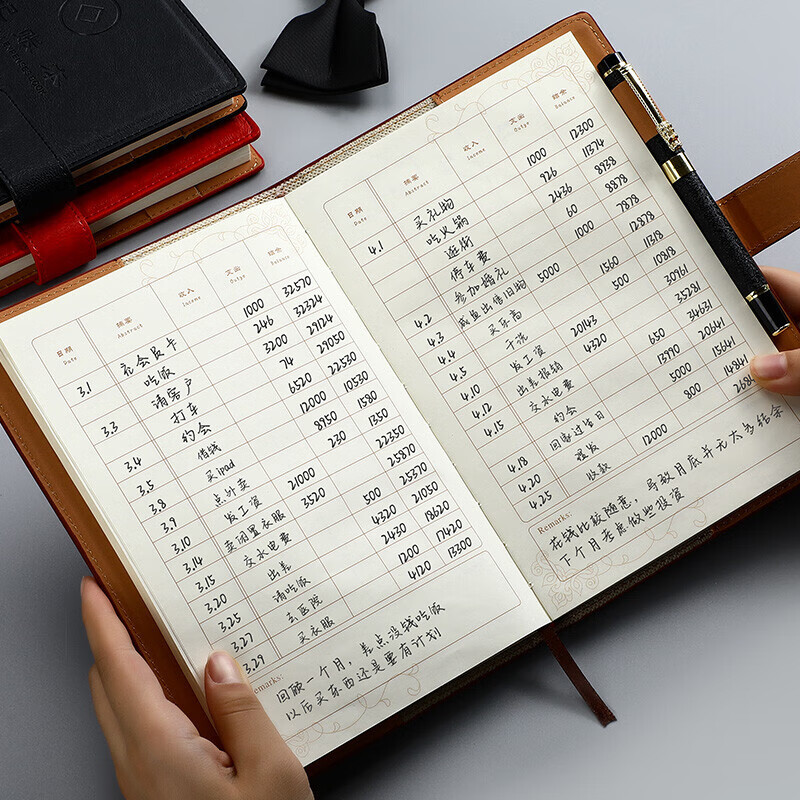 日期 摘要 收入 支出 结余
Date Abstract Income Outgo Balance
3.1 充会员卡 1000 32570
吃饭 246 32324
3.3 请客户 3200 29124
打车 74 29050
3.4 约会 6520 22530
3.5 借钱 12000 10530
3.8 买ipad 8950 1580
3.9 点外卖 230 1350
3.10 发工资 21000 22350
3.14 卖闲置衣服 3520 25870
3.15 交水电费 500 25370
3.20 出差 4320 21050
3.25 请吃饭 2430 18620
3.27 去医院 1200 17420
3.29 买衣服 4120 13300
Remarks:
回顾一个月，差点没钱吃饭
以后买东西还是要有计划
日期 摘要 收入 支出 结余
Date Abstract Income Outgo Balance
4.1 买礼物 1000 12300
吃火锅 926 11374
逛街 2436 8938
停车费 60 8878
参加婚礼 1000 7878
4.2 咸鱼出售旧物 5000 12878
4.3 买乐高 1560 11318
4.4 干洗 500 10818
4.5 发工资 20143 30961
4.10 出差报销 4320 35281
4.12 交水电费 650 34631
4.15 约会 13990 20641
4.18 回家过生日 5000 15641
4.20 理发 800 14841
4.25 收款 12000
Remarks:
花钱比较随意，导致月底并无太多结余
下个月考虑做些投资